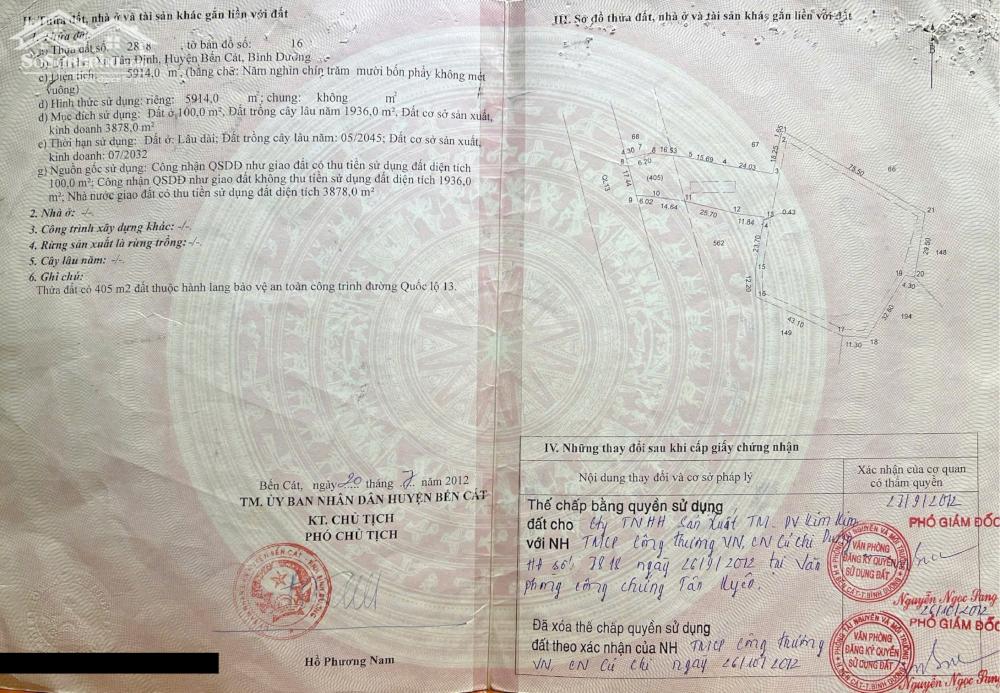 II. Thửa đất, nhà ở và tài sản khác gắn liền với đất
1. Thửa đất:
a) Thửa đất số: 288, tờ bản đồ số: 16
Xã Tân Định, Huyện Bến Cát, Bình Dương
c) Diện tích: 5914,0 m², (bằng chữ: Năm nghìn chín trăm mười bốn phẩy không mét
vuông)
d) Hình thức sử dụng: riêng: 5914,0 m²; chung: không m²
đ) Mục đích sử dụng: Đất ở 100,0 m², Đất trồng cây lâu năm 1936,0 m², Đất cơ sở sản xuất,
kinh doanh 3878,0 m²
e) Thời hạn sử dụng: Đất ở: Lâu dài; Đất trồng cây lâu năm: 05/2045; Đất cơ sở sản xuất,
kinh doanh: 07/2032
g) Nguồn gốc sử dụng: Công nhận QSDĐ như giao đất có thu tiền sử dụng đất diện tích
100,0 m²; Công nhận QSDĐ như giao đất không thu tiền sử dụng đất diện tích 1936,0
m²; Nhà nước giao đất có thu tiền sử dụng đất diện tích 3878,0 m²
2. Nhà ở: -/-
3. Công trình xây dựng khác: -/-
4. Rừng sản xuất là rừng trồng: -/-
5. Cây lâu năm: -/-
6. Ghi chú:
Thửa đất có 405 m2 đất thuộc hành lang bảo vệ an toàn công trình đường Quốc lộ 13.
Bến Cát, ngày 20 tháng 7 năm 2012
TM. ỦY BAN NHÂN DÂN HUYỆN BẾN CÁT
KT. CHỦ TỊCH
PHÓ CHỦ TỊCH
Hồ Phương Nam
III. Sơ đồ thửa đất, nhà ở và tài sản khác gắn liền với đất
B
1.95 1
2
67
18.25
68
4.30 7 8 16.83 5 15.69 4 24.03 3
6 6.20
78.50
66
QL13
17.44
(405)
10
9 6.02 14.64 11
25.70
12
11.84
13 0.43
14
21
562
23.70
29.50
148
15
12.20
16
19 20
4.30
43.10
149
32.60
194
17
11.30 18
IV. Những thay đổi sau khi cấp giấy chứng nhận
Nội dung thay đổi và cơ sở pháp lý
Xác nhận của cơ quan
có thẩm quyền
Thế chấp bằng quyền sử dụng
đất cho Cty TNHH Sản Xuất TM. DV Kim Kim
với NH TMCP Công thương VN, CN Củ Chi
HĐ số: 3818 ngày 26/9/2012 tại Văn
phòng công chứng Tân Uyên.
27/9/2012
PHÓ GIÁM ĐỐC
VĂN PHÒNG
ĐĂNG KÝ QUYỀN
SỬ DỤNG ĐẤT
H.BẾN CÁT-T.BÌNH DƯƠNG
Nguyễn Ngọc Sang
Đã xóa thế chấp quyền sử dụng
đất theo xác nhận của NH TMCP Công thương
VN, CN Củ Chi ngày 26/10/2012
26/10/2012
PHÓ GIÁM ĐỐC
VĂN PHÒNG
ĐĂNG KÝ QUYỀN
SỬ DỤNG ĐẤT
H.BẾN CÁT-T.BÌNH DƯƠNG
Nguyễn Ngọc Sang